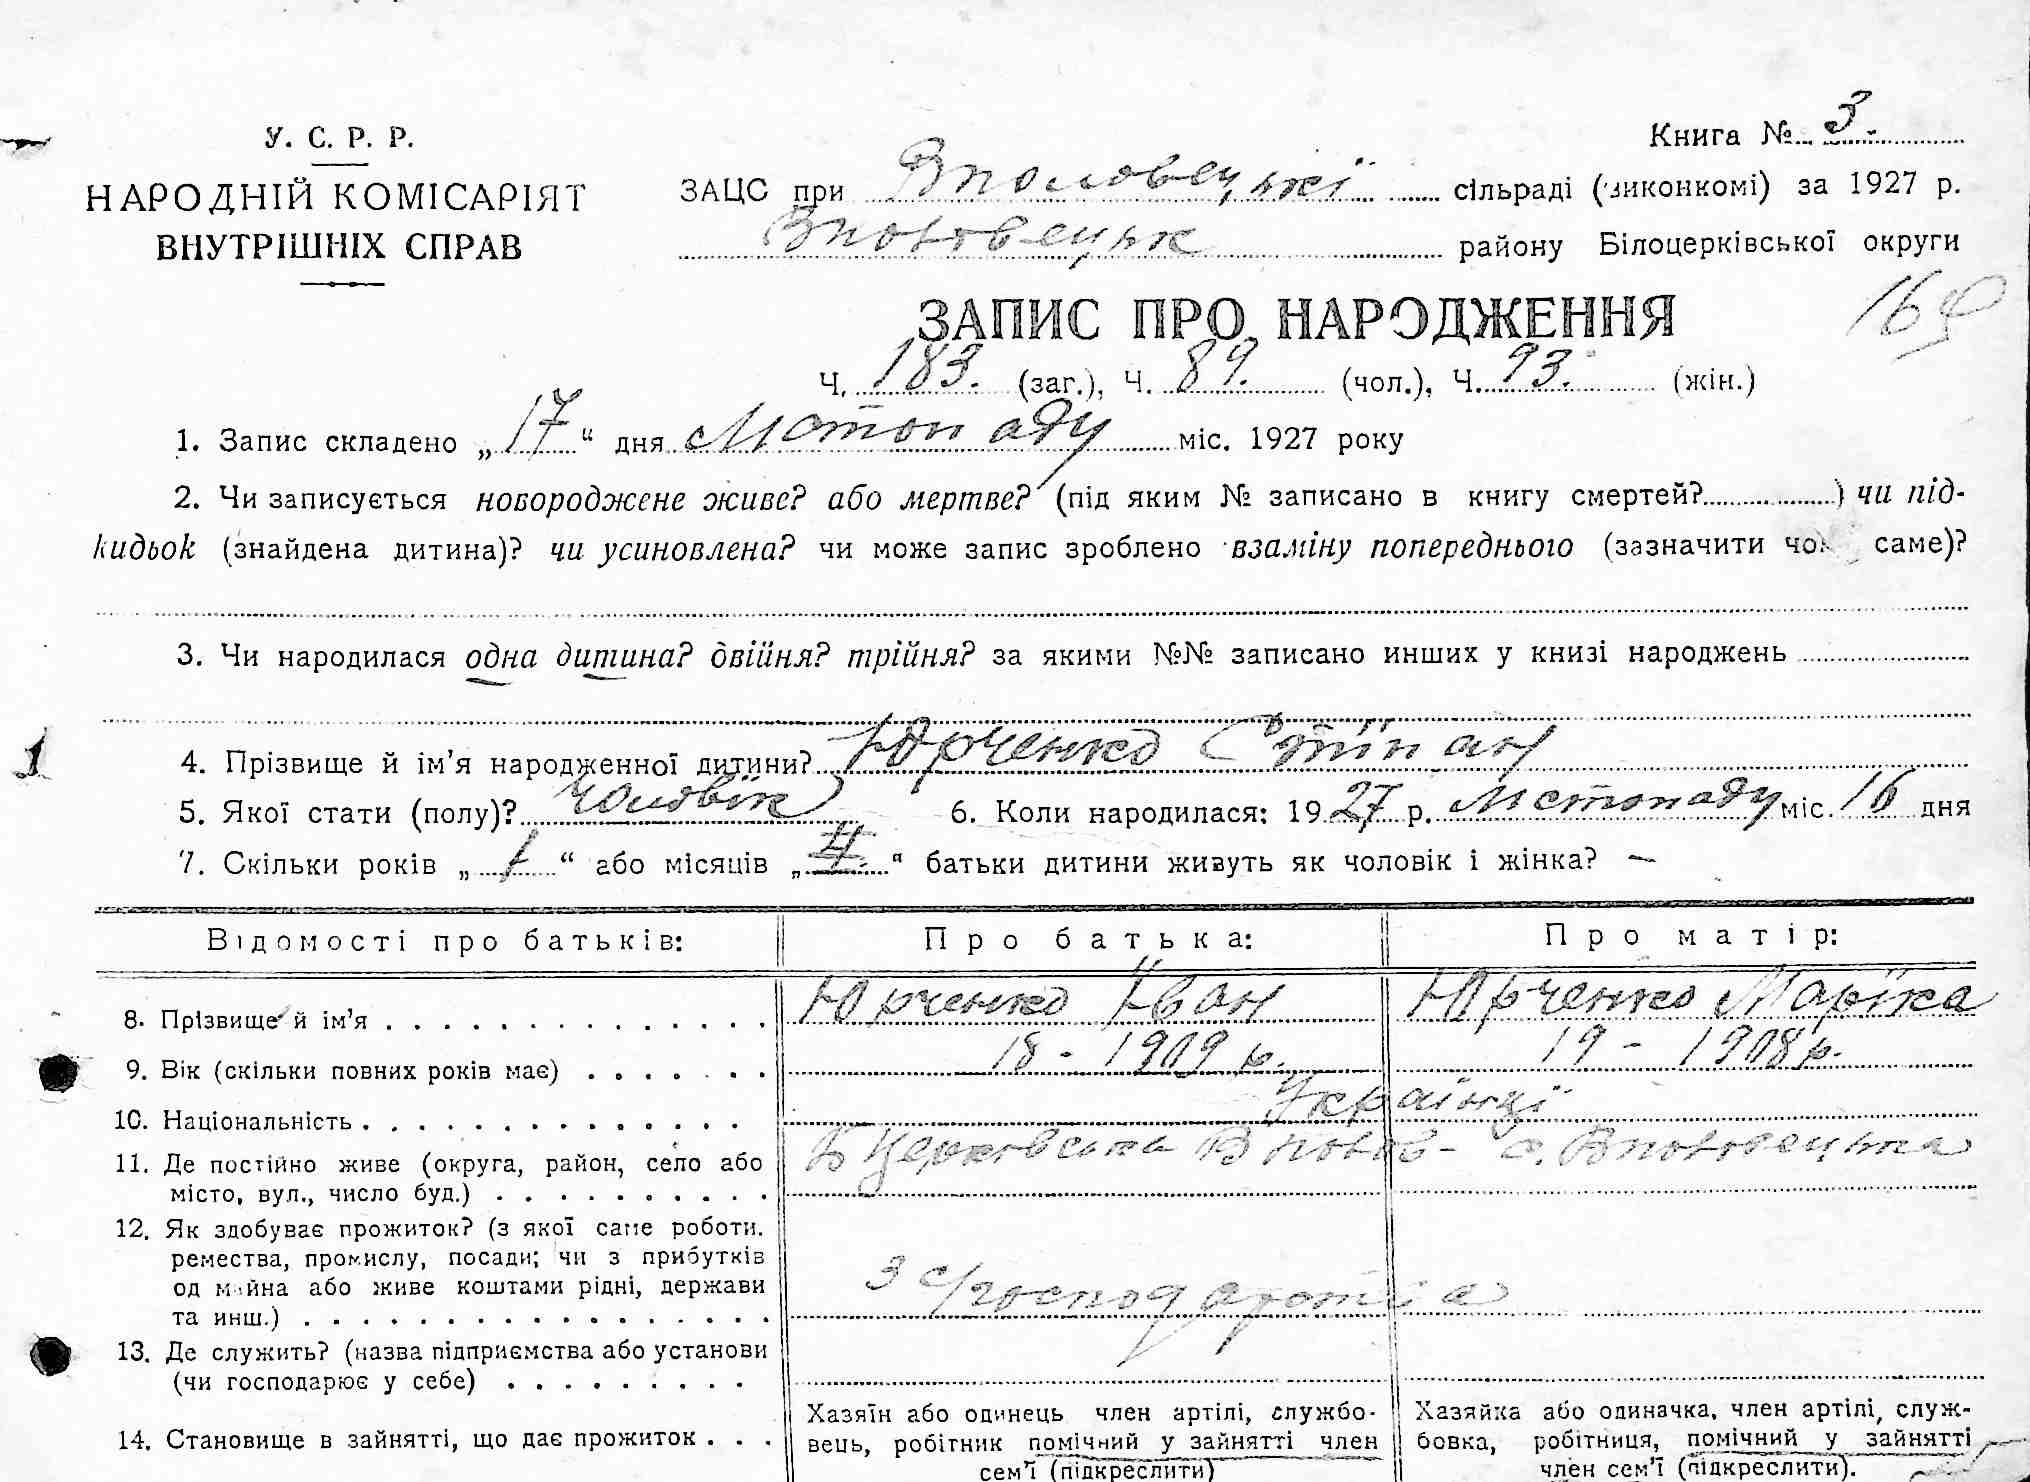 Книга № 3.
У. С. Р. Р.
НАРОДНІЙ КОМІСАРІЯТ
ВНУТРІШНІХ СПРАВ
ЗАЦС при Вполовецькі сільраді (виконкомі) за 1927 р.
Вполовецьк району Білоцерківської округи
ЗАПИС ПРО НАРОДЖЕННЯ
Ч. 183. (заг.), Ч. 89. (чол.), Ч. 93. (жін.)
1. Запис складено „17“ дня Листопаду міс. 1927 року
2. Чи записується новороджене живе? або мертве? (під яким № записано в книгу смертей?..........) чи під-
кидьок (знайдена дитина)? чи усиновлена? чи може запис зроблено взаміну попереднього (зазначити саме)?
3. Чи народилася одна дитина? двійня? трійня? за якими №№ записано инших у книзі народжень
4. Прізвище й ім'я народженної дитини? Юрченко Стіпан
5. Якої стати (полу)? Чоловік 6. Коли народилася: 1927 р. Листопаду міс. 16 дня
7. Скільки років „1“ або місяців „4.“ батьки дитини живуть як чоловік і жінка? —
Відомості про батьків: Про батька: Про матір:
8. Прізвище й ім'я . . . Юрченко Іван Юрченко Марійка
9. Вік (скільки повних років має) . . . 18 - 1909 р. 19 - 1908 р.
10. Національність . . . Українці
11. Де постійно живе (округа, район, село або Б Церковська Вполов- с. Вполовецька
місто, вул., число буд.) . . .
12. Як здобуває прожиток? (з якої саме роботи.
ремества, промислу, посади; чи з прибутків
од майна або живе коштами рідні, держави З с/господарства
та инш.) . . .
13. Де служить? (назва підприємства або установи
(чи господарює у себе) . . .
14. Становище в зайнятті, що дає прожиток . . .
Хазяїн або одинець член артілі, службо-
вець, робітник помічний у зайнятті член
сем'ї (підкреслити)
Хазяйка або одиначка, член артілі, служ-
бовка, робітниця, помічний у зайнятті
член сем'ї (підкреслити).